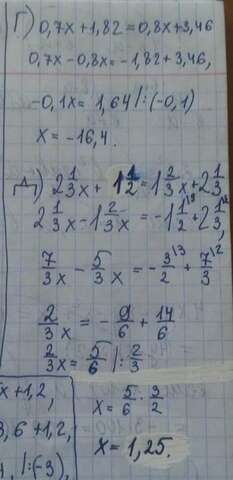 Г) 0,7x+1,82=0,8x+3,46
0,7x-0,8x=-1,82+3,46,
-0,1x=1,64 /:(-0,1)
x=-16,4.
Д) 2 1/3 x + 1 1/2 = 1 2/3 x + 2 1/3
2 1/3 x - 1 2/3 x = -1 1/2 + 2 1/3,
7/3 x - 5/3 x = -3/2 + 7/3
2/3 x = -9/6 + 14/6
2/3 x = 5/6 /: 2/3
x = 5/6 · 3/2
x = 1,25.
x+1,2,
3,6+1,2,
/:(-3),